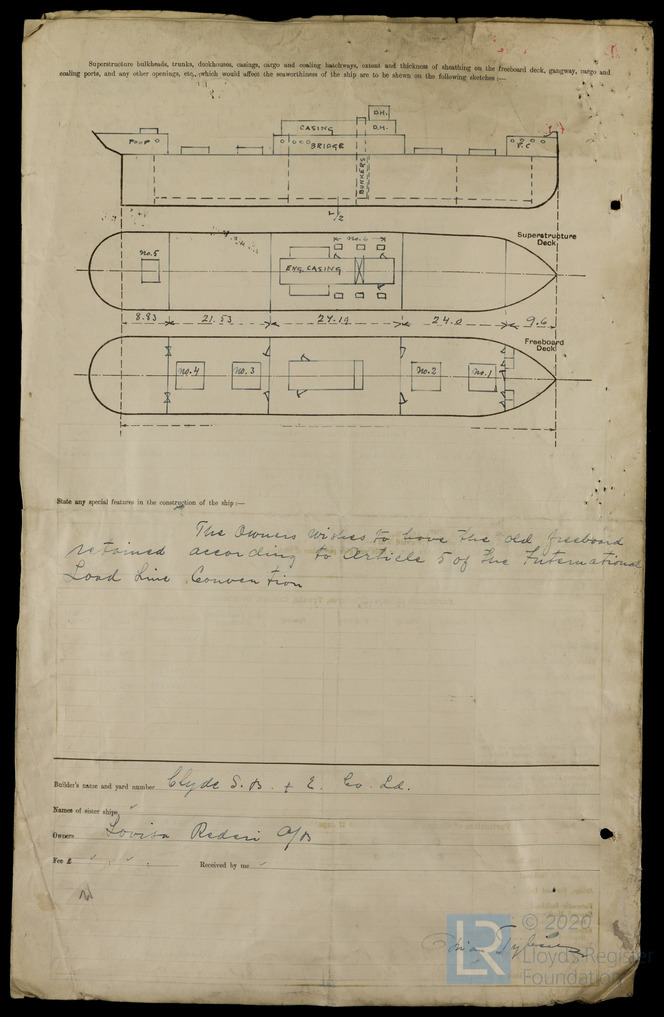 Superstructure bulkheads, trunks, deckhouses, casings, cargo and coaling hatchways, extent and thickness of sheathing on the freeboard deck, gangway, cargo and
coaling ports, and any other openings, etc., which would affect the seaworthiness of the ship are to be shewn on the following sketches :—
D.H.
CASING
D.H.
POOP
BRIDGE
F.C
BUNKERS
Superstructure
Deck.
No.6
No.5
ENG. CASING
8.83
21.53
27.19
24.0
9.6
Freeboard
Deck
No.4
No.3
No.2
No.1
State any special features in the construction of the ship :—
The Owners wishes to have the old freeboard
retained according to Article 5 of the International
Load Line Convention
Builder's name and yard number Clyde S.B. + E. Co. Ld.
Names of sister ships
Owners Lovisa Rederi A/B
Fee £
Received by me
LR
© 2020
Lloyd's Register
Foundation